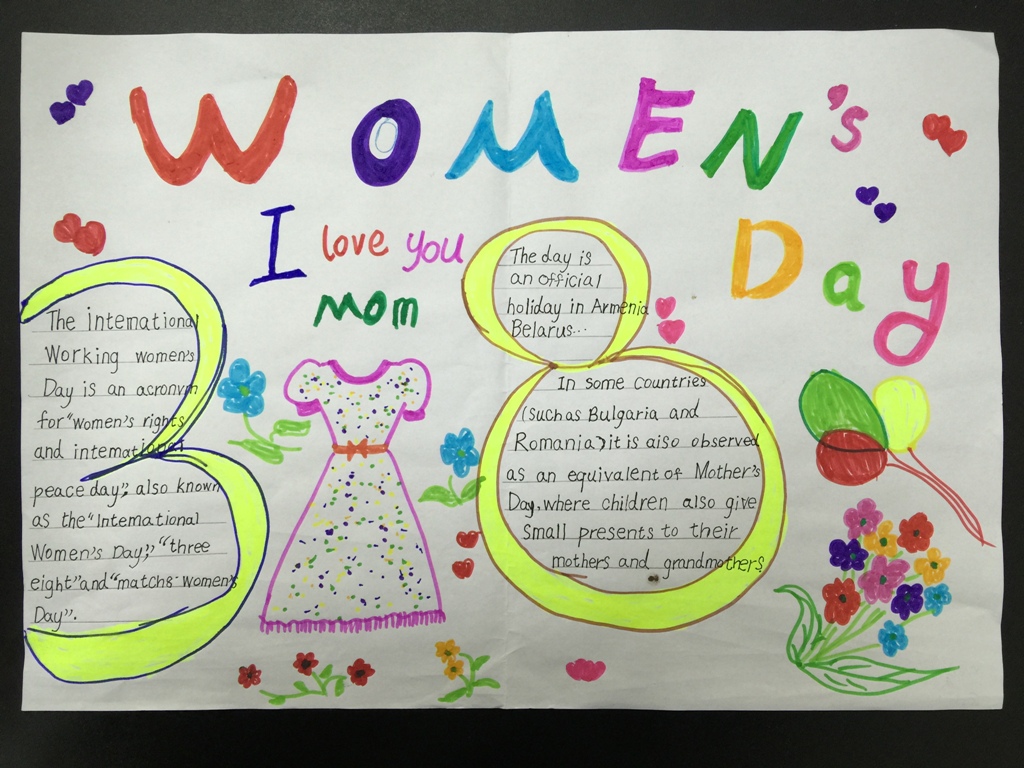 WOMEN's
Day
I love you
Mom
The international
Working women's
Day is an acronvm
for "women's rights
and intemational
peace day", also known
as the "International
Women's Day;" "three
eight" and "matchs women's
Day".
The day is
an official
holiday in Armenia
Belarus...
In some countries
(such as Bulgaria and
Romania) it is aiso observed
as an equivalent of Mother's
Day, where children also give
small presents to their
mothers and grandmothers.